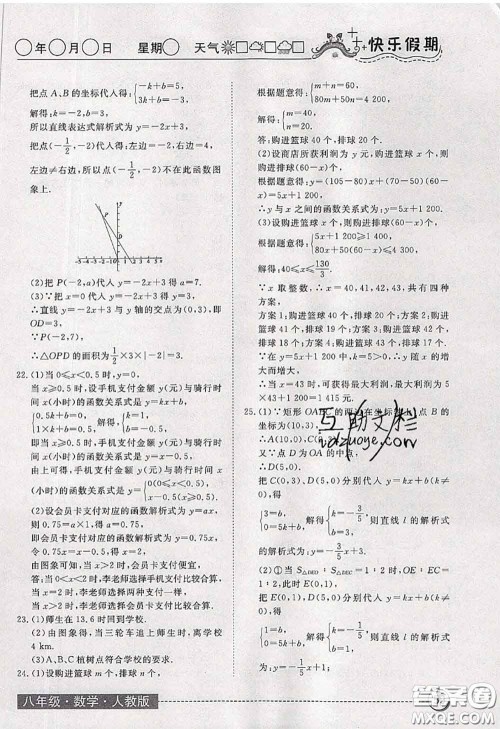 ○年○月○日 星期○ 天气
快乐假期
把点 A、B 的坐标代入得:{-k+b=5, k+b=1.
解得:k=-2,b=3,
所以直线表达式解析式为 y=-2x+3,
把点(-1/2,-2)代入得:左边=-2,右边=4,
左边≠右边,所以点(-1/2,-2)不在此函数图
象上.
(2)把 P(-2,a)代入 y=-2x+3 得 a=7.
(3)∵把 x=0 代入 y=-2x+3 得 y=3,
∴直线 y=-2x+3 与 y 轴的交点为(0,3),即
OD=3,
∵P(-2,7),
∴△OPD 的面积为1/2×3×|-2|=3.
22.(1)当 0≤x<0.5 时,y=0,
当 x≥0.5 时,设手机支付金额 y(元)与骑行时
间 x(小时)的函数关系式是 y=kx+b,
{0.5k+b=0, 1×k+b=0.5, 解得{k=1, b=-0.5.
即当 x≥0.5 时,手机支付金额 y(元)与骑行时
间 x(小时)的函数关系式是 y=x-0.5,
由上可得,手机支付金额 y(元)与骑行时间 x
(小时)的函数关系式是 y={0(0≤x<0.5), x-0.5(x≥0.5).
(2)设会员卡支付对应的函数解析式为 y=ax,
则 0.75=a×1,得 a=0.75,
即会员卡支付对应的函数解析式为 y=0.75x,
令 0.75x=x-0.5,得 x=2,
由图象可知,
当 0<x<2 时,李老师选择手机支付比较合算,
当 x=2 时,李老师选择两种支付一样,
当 x>2 时,李老师选择会员卡支付比较合算.
23.(1)师生在 13.6 时回到学校.
(2)由图象得,当三轮车追上师生时,离学校
4 km.
(3)A、B、C 植树点符合学校的要求.
24.(1)设购进篮球 m 个,排球 n 个,
根据题意得:{m+n=60, 80m+50n=4 200,
解得:{m=40, n=20.
答:购进篮球 40 个,排球 20 个.
(2)设商店所获利润为 y 元,购进篮球 x 个,则
购进排球(60-x)个,
根据题意得:y=(105-80)x+(70-50)(60-
x)=5x+1 200,
∴y 与 x 之间的函数关系式为:y=5x+1 200.
(3)设购进篮球 x 个,则购进排球(60-x)个,
根据题意得:{5x+1 200≥1 400, 80x+50(60-x)≤4 300,
解得:40≤x≤130/3.
∵x 取整数,∴x=40,41,42,43,共有四种
方案,
方案 1:购进篮球 40 个,排球 20 个;方案 2:购进
篮球 41 个,排球 19 个;方案 3:购进篮球 42 个,
排球 18 个;方案 4:购进篮球 43 个,排球 17 个.
∵在 y=5x+1 200 中,k=5>0,∴y 随 x 的增大
而增大,
∴当 x=43 时,可获得最大利润,最大利润为 5
×43+1 200=1 415 元.
∴A(10,0),
又∵点 D 为 OA 的中点,
∴D(5,0),
把 C(0,3)、D(5,0)分别代入 y=kx+b(k≠
0),
{3=b, 0=5k+b, 解得{k=-3/5, b=3. 则直线 l 的解析式
为:y=-3/5x+3;
把 E(0,1)、D(5,0)分别代入 y=kx+b(k≠
0),
则直线 l 的解析式
互助文栏
idzuoye.com
八年级·数学·人教版
答案圈
MXQE.COM